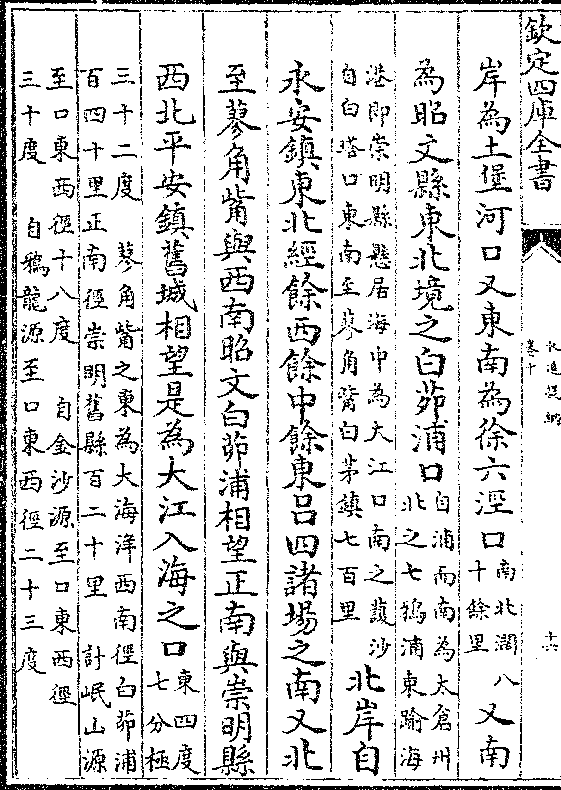 欽定四庫全書
水道提綱
卷十
十六
岸為土堡河口又東南為徐六涇口
南北濶八
十餘里
又南
為昭文縣東北境之白茆浦口
自浦而南為太倉州
北之七鴉浦東踰海
港即崇明縣懸居海中為大江口南之護沙
自白塔口東南至蓼角觜白茅鎮七百里
北岸自
永安鎮東北經餘西餘中餘東吕四諸場之南又北
至蓼角觜與西南昭文白茆浦相望正南與崇明縣
西北平安鎮舊城相望是為大江入海之口
東四度
七分極
三十二度 蓼角觜之東為大海洋西南徑白茆浦
百四十里正南徑崇明舊縣百二十里 計岷山源
至口東西徑十八度 自金沙源至口東西徑
三十度 自鴉龍源至口東西徑二十三度